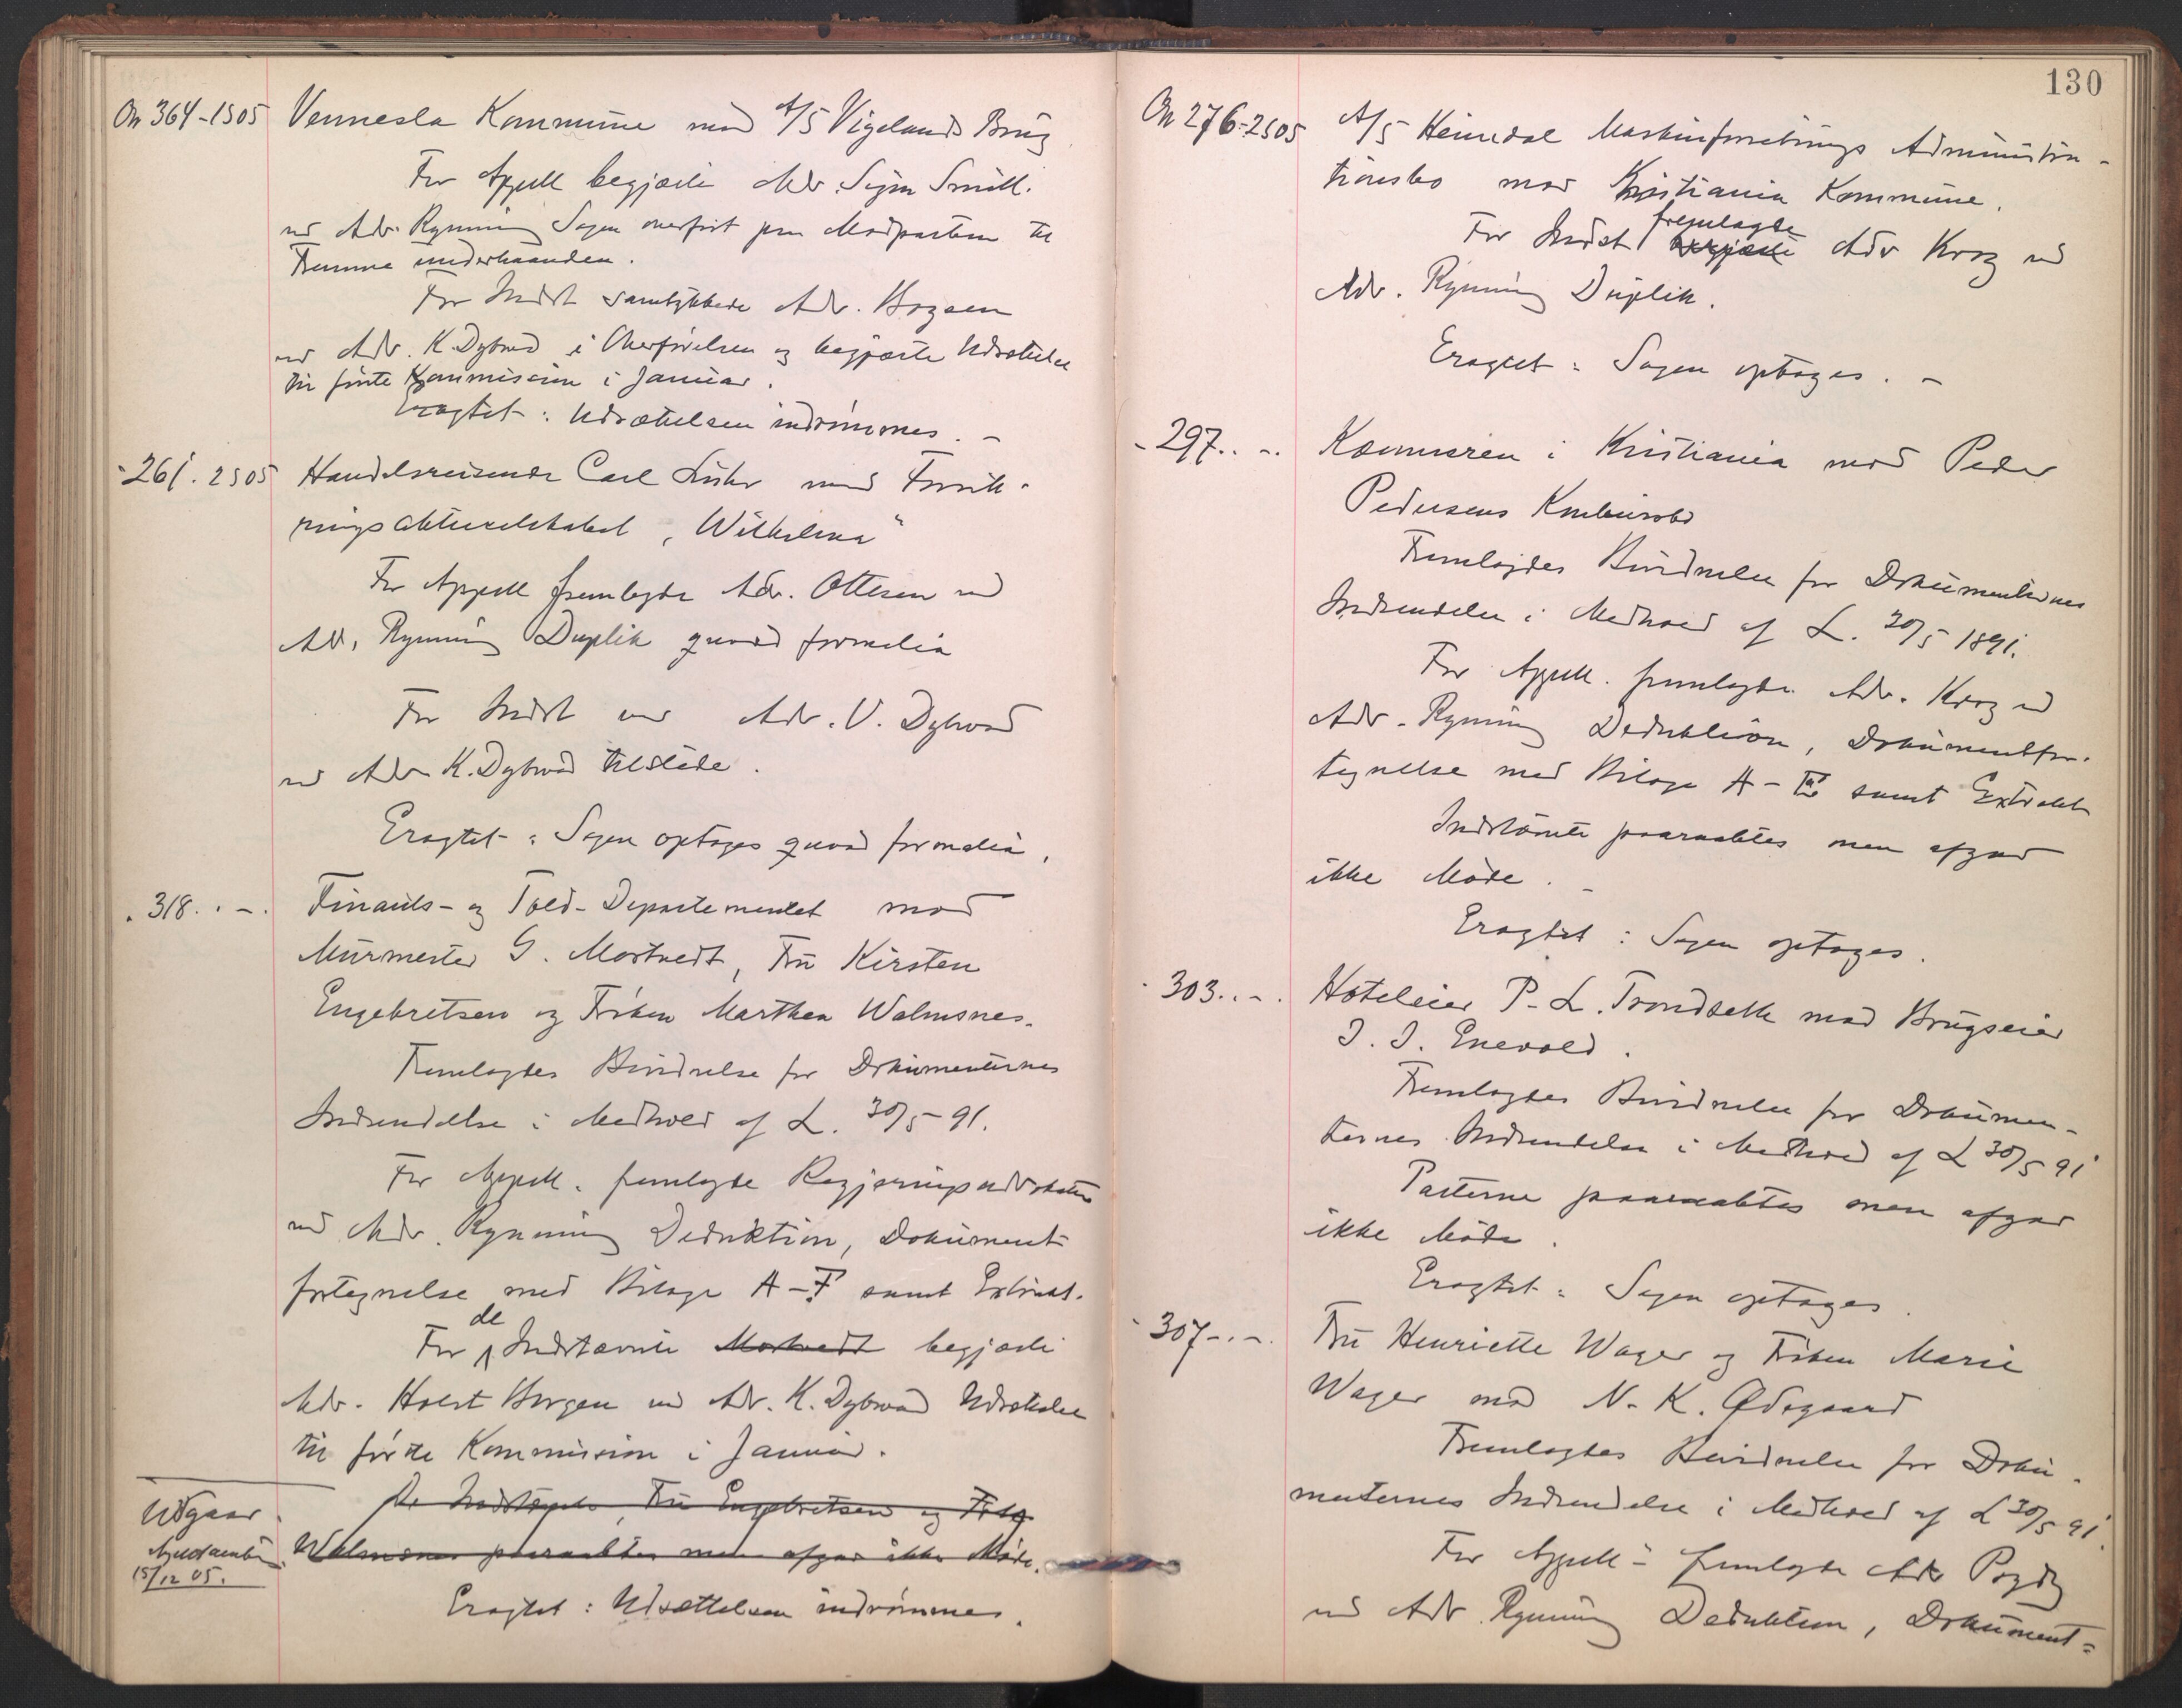 On 364-1905 Vennesla Kommune mod A/S Vigelands Brug
For Appell begjærte Adv. Sejer Smith
ved Adv. Rynning Sagen overført fra Modparten til
Fremme underhaanden.
For Indst samtykkede Adv. Hagen
ved Adv. K. Dybwad i Overførelsen og begjærte Udsættelse
til første Kommission i Januar.
Eragtet: Udsættelsen indrømmes. -
- 261. 2 S 05 Handelsreisende Carl Lühr mod Forsik-
ringsaktieselskabet "Wilhelma"
For Appell fremlagde Adv. Ottesen ved
Adv. Rynning Duplik quoad formalia
For Indst var Adv. V. Dybwad
ved Adv K. Dybwad tilstede.
Eragtet: Sagen optages quoad formalia.
- 318. . -. Finants- og Told-Departementet mod
Murmester G. Mostvedt, Fru Kirsten
Engebretsen og Frøken Marthea Walmsnes.
Fremlagdes Bevidnelse for Dokumenternes
Indsendelse i Medhold af L. 30/5 - 91.
For Appell. fremlagde Regjeringsadvokaten
ved Adv. Rynning Deduktion, Dokument-
fortegnelse med Bilage A-F samt Extrakt.
For de Indstævnte Mostvedt begjærte
Adv. Holst Borgen ved Adv. K. Dybwad Udsættelse
til første Kommission i Januar.
De Indstævnte, Fru Engebretsen og Frkn
Walmsnes paaraabtes men afgav ikke Møde.
Udgaar
15/12 05.
Eragtet: Udsættelsen indrømmes.
130
On 276-2 S 05 A/S Heimdal Maskinforretnings Administra-
tionsbo mod Kristiania Kommune.
fremlagde
For Indst begjærte Adv Krog ved
Adv. Rynning Duplik.
Eragtet: Sagen optages. -
- 297. . -. Kæmneren i Kristiania mod Peder
Pedersens Konkursbo
Fremlagdes Bevidnelse for Dokumenternes
Indsendelse i Medhold af L. 30/5 1891.
For Appell. fremlagde Adv. Krog ved
Adv. Rynning Deduktion, Dokumentfor-
tegnelse med Bilage A-E samt Extrakt
Indstævnte paaraabtes men afgav
ikke Møde. -
Eragtet: Sagen optages.
- 303. . -. Hoteleier P. L. Trondsett mod Brugseier
I. I. Enevold.
Fremlagdes Bevidnelse for Dokumen-
ternes Indsendelse i Medhold af L 30/5 91
Parterne paaraabtes men afgav
ikke Møde.
Eragtet: Sagen optages.
- 307 -. -. Fru Henriette Wager og Frøken Marie
Wager mod N. K. Ødegaard
Fremlagdes Bevidnelse for Doku-
menternes Indsendelse i Medhold af L 30/5 91.
For Appell - fremlagde Adv
ved Adv Rynning Deduktion, Dokument-